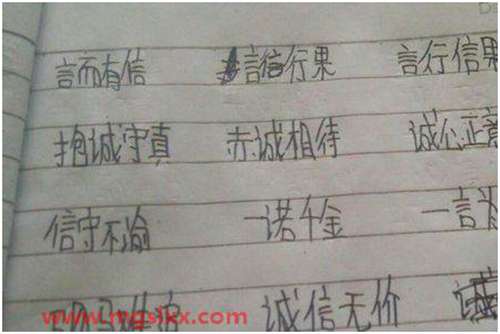 言而有信 言信行果 言行信果
抱诚守真 赤诚相待 诚心正意
信守不渝 一诺千金 一言为
诚信无价 诚
www.mgslkx.com